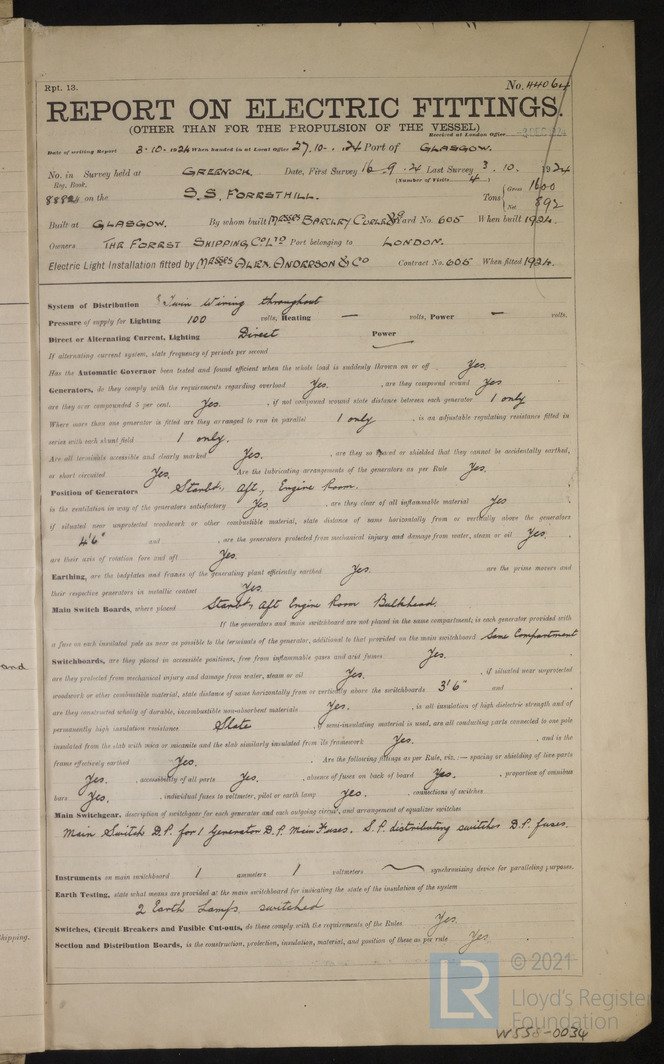 Rpt. 13.
No. 44064
REPORT ON ELECTRIC FITTINGS.
(OTHER THAN FOR THE PROPULSION OF THE VESSEL)
Received at London Office -3 DEC 1924
Date of writing Report 3-10-1924 When handed in at Local Office 27.10.24 Port of GLASGOW.
No. in Survey held at GREENOCK Date, First Survey 16-9-24 Last Survey 3.10.1924
Reg. Book. (Number of Visits 4)
on the S.S. FORESTHILL. Tons Gross 1600
Net 892
Built at GLASGOW. By whom built MESSRS BARCLEY CURLE & Co Yard No. 605 When built 1924.
Owners THE FOREST SHIPPING Co LTD Port belonging to LONDON.
Electric Light Installation fitted by MESSRS ALEX. ANDERSON & Co Contract No. 605 When fitted 1924.
System of Distribution Twin Wiring throughout
Pressure of supply for Lighting 100 volts, Heating — volts, Power — volts.
Direct or Alternating Current, Lighting Direct Power
If alternating current system, state frequency of periods per second
Has the Automatic Governor been tested and found efficient when the whole load is suddenly thrown on or off Yes.
Generators, do they comply with the requirements regarding overload Yes. , are they compound wound Yes
are they over compounded 5 per cent. Yes. , if not compound wound state distance between each generator 1 only
Where more than one generator is fitted are they arranged to run in parallel 1 only , is an adjustable regulating resistance fitted in
series with each shunt field 1 only.
Are all terminals accessible and clearly marked Yes. , are they so spaced or shielded that they cannot be accidentally earthed,
or short circuited Yes. Are the lubricating arrangements of the generators as per Rule Yes.
Position of Generators Starbd., Aft., Engine Room.
is the ventilation in way of the generators satisfactory Yes. , are they clear of all inflammable material Yes
if situated near unprotected woodwork or other combustible material, state distance of same horizontally from or vertically above the generators
4'6" and , are the generators protected from mechanical injury and damage from water, steam or oil Yes.
are their axis of rotation fore and aft Yes.
Earthing, are the bedplates and frames of the generating plant efficiently earthed Yes. are the prime movers and
their respective generators in metallic contact Yes.
Main Switch Boards, where placed Starbd, Aft Engine Room Bulkhead.
If the generators and main switchboard are not placed in the same compartment, is each generator provided with
a fuse on each insulated pole as near as possible to the terminals of the generator, additional to that provided on the main switchboard Same Compartment
Switchboards, are they placed in accessible positions, free from inflammable gases and acid fumes Yes.
are they protected from mechanical injury and damage from water, steam or oil Yes. , if situated near unprotected
woodwork or other combustible material, state distance of same horizontally from or vertically above the switchboards 3'6" and
are they constructed wholly of durable, incombustible non-absorbent materials Yes. , is all insulation of high dielectric strength and of
permanently high insulation resistance Slate , if semi-insulating material is used, are all conducting parts connected to one pole
insulated from the slab with mica or micanite and the slab similarly insulated from its framework Yes. , and is the
frame effectively earthed Yes. Are the following fittings as per Rule, viz.:— spacing or shielding of live parts
Yes. , accessibility of all parts Yes. , absence of fuses on back of board Yes. , proportion of omnibus
bars Yes. , individual fuses to voltmeter, pilot or earth lamp Yes. , connections of switches
Main Switchgear, description of switchgear for each generator and each outgoing circuit, and arrangement of equalizer switches
Main Switch D.P. for 1 Generator D.P. Main Fuses. S.P. distributing switches D.P. fuses.
Instruments on main switchboard 1 ammeters 1 voltmeters synchronising device for paralleling purposes.
Earth Testing, state what means are provided at the main switchboard for indicating the state of the insulation of the system
2 Earth Lamps switched
Switches, Circuit Breakers and Fusible Cut-outs, do these comply with the requirements of the Rules Yes.
Section and Distribution Boards, is the construction, protection, insulation, material, and position of these as per rule Yes
and
hipping.
LR © 2021
Lloyd's Register
Foundation
W558-0034